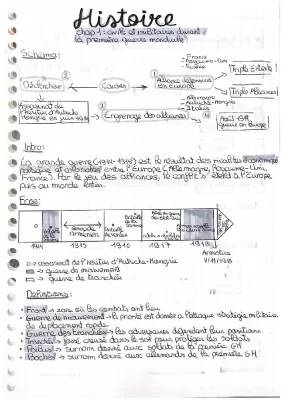 Histoire
chap 1: civils et militaires durant
la première guerre mondiale
Schéma:
- France
- Royaume-Uni
Triple Entente
Déclencheur
Causes
Alliance défensives
en Europe
- Allemagne
- Autriche-Hongrie
- Italie
Triple Alliance
Assassinat de
l'héritier d'Autriche
Hongrie en juin 1914
Engrenage des alliances
Août 1914
guerre en Europe
Intro:
La grande guerre (1914-1918) est le résultat des rivalités économique
politique et coloniales entre l'Europe (Allemagne, Royaume-Uni,
France). Par le jeu des alliances, le conflit s'étend à l'Europe
puis au monde entier.
Frise:
génocide
arménien
1914 1915 1916 1917 1918
Armistice
11/11/1918
assassinat de l'héritier d'Autriche-Hongrie
guerre de mouvement
guerre de tranchés
Définitions:
Front → zone où les combats ont lieu
Guerre de mouvement → la priorité est donnée à l'attaque stratégie militaire
de déplacement rapide
Guerre des tranchées → les adversaires défendent leur positions
Tranchée → fossé creusé dans le sol pour protéger les soldats
Poilus → surnom donné aux soldats de la première GM
Boches → surnom donné aux allemands de la première GM